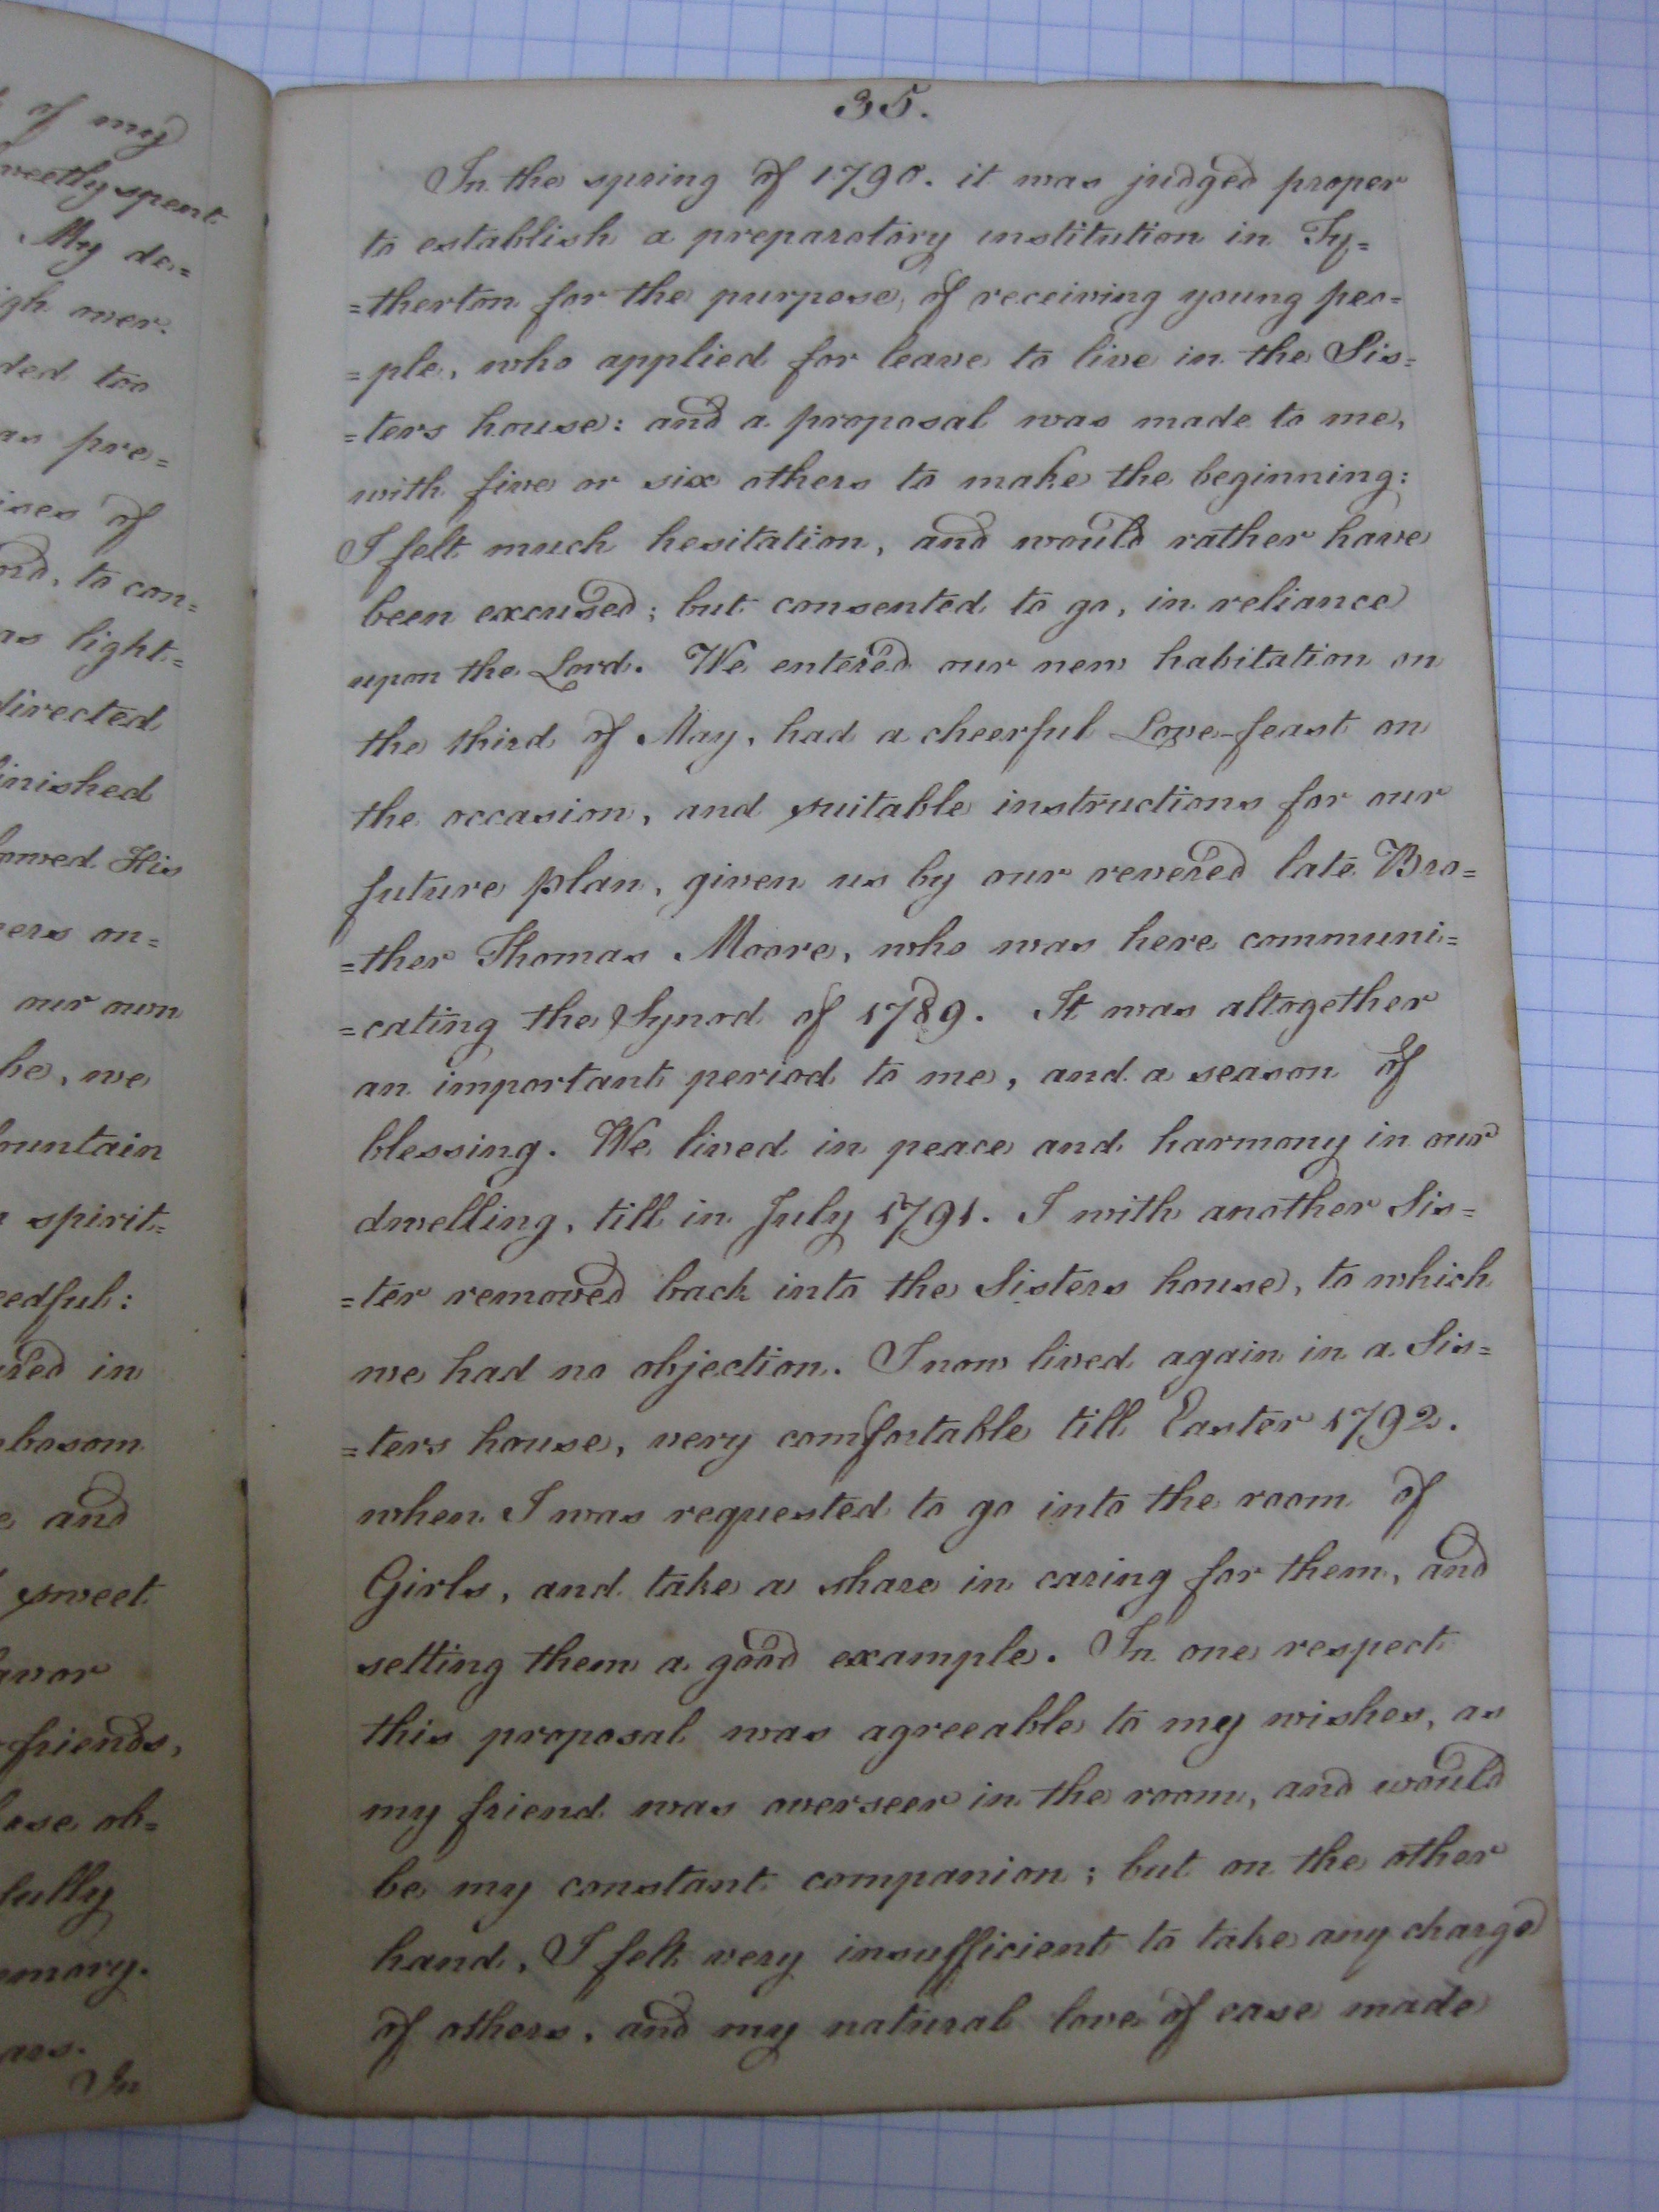 of my
sweetly spent
My de=
igh over.
ded too
as pre=
ises of
ord, to con=
as light=
directed
finished
owed His
eers on=
our own
he, we
fountain
spirit=
eedful:
red in
bosom
e and
sweet
avor
friends,
ese ob=
fully
emory.
ars.
In
35.
In the spring of 1790. it was judged proper
to establish a preparatory institution in Ty=
=therton for the purpose, of receiving young peo=
=ple, who applied for leave to live in the Sis=
=ters house: and a proposal was made to me,
with five or six others to make the beginning:
I felt much hesitation, and would rather have
been excused; but consented to go, in reliance
upon the Lord. We entered our new habitation on
the third of May, had a cheerful Love-feast on
the occasion, and suitable instructions for our
future plan, given us by our revered late Bro=
=ther Thomas Moore, who was here communi=
=cating the Synod of 1789. It was altogether
an important period to me, and a season of
blessing. We lived in peace and harmony in our
dwelling, till in July 1791. I with another Sis=
=ter removed back into the Sisters house, to which
we had no objection. I now lived again in a Sis=
=ters house, very comfortable till Easter 1792.
when I was requested to go into the room of
Girls, and take a share in caring for them, and
setting them a good example. In one respect
this proposal was agreeable to my wishes, as
my friend was overseer in the room, and would
be my constant companion; but on the other
hand, I felt very insufficient to take any charge
of others, and my natural love of ease made